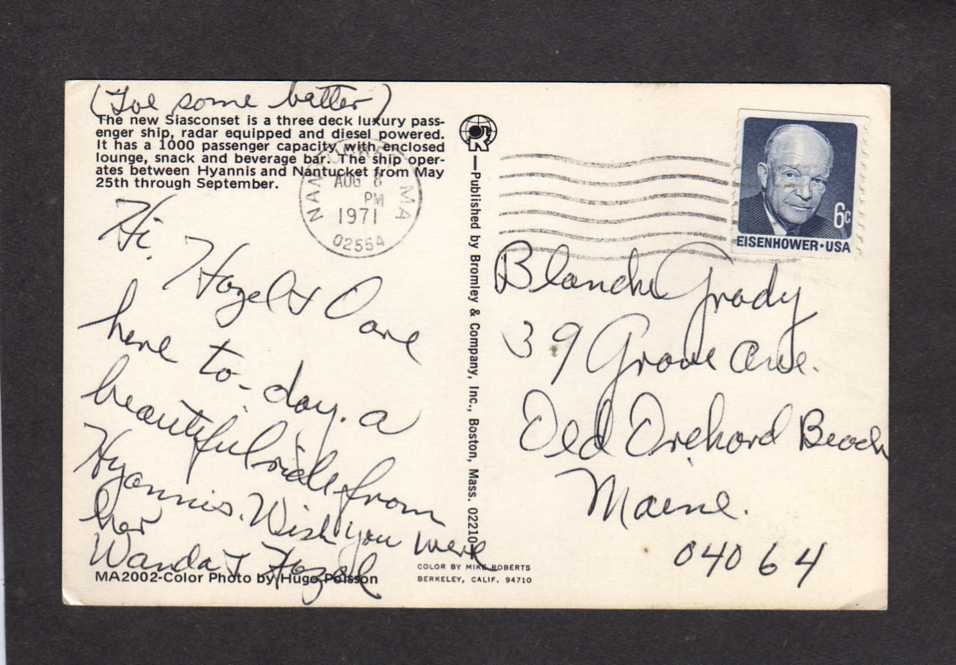 (Joe some better)
The new Siasconset is a three deck luxury pass-
enger ship, radar equipped and diesel powered.
It has a 1000 passenger capacity with enclosed
lounge, snack and beverage bar. The ship oper-
ates between Hyannis and Nantucket from May
25th through September.
NANTUCKET MA
AUG 8
PM
1971
02554
Hi,
Hazel & I are
here to-day. a
beautiful ride from
Hyannis. Wish you were
her
Wanda & Hazel
MA2002-Color Photo by Hugo Poisson
Published by Bromley & Company, Inc., Boston, Mass. 02210
COLOR BY MIKE ROBERTS
BERKELEY, CALIF. 94710
6c
EISENHOWER·USA
Blanche Grady
39 Grove Ave.
Old Orchard Beach
Maine.
04064